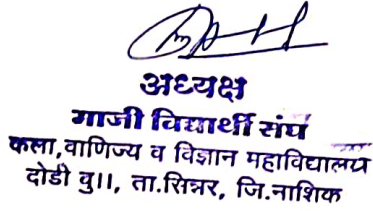 अध्यक्ष
माजी विद्यार्थी संघ
कला, वाणिज्य व विज्ञान महाविद्यालय
दोडी बु।।, ता.सिन्नर, जि.नाशिक